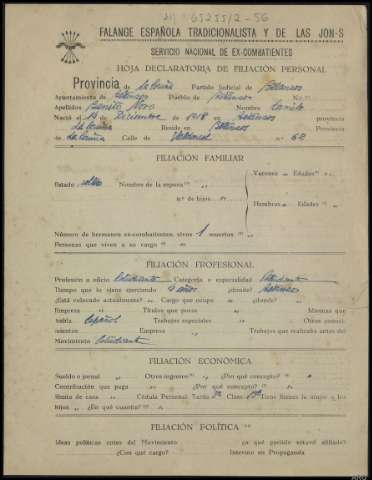 21 65255/2-56
FALANGE ESPAÑOLA TRADICIONALISTA Y DE LAS JON-S
SERVICIO NACIONAL DE EX-COMBATIENTES
HOJA DECLARATORIA DE FILIACIÓN PERSONAL
Provincia de La Coruña Partido Judicial de Betanzos
Ayuntamiento de Betanzos Pueblo de Betanzos
Apellidos Benito Nombre Camilo
Nació el 14 Diciembre de 1918 en Betanzos provincia
La Coruña Reside en Betanzos Provincia
La Coruña Calle de nº 62
FILIACIÓN FAMILIAR
Estado soltero Nombre de la esposa " Varones - Edades "
nº de hijos " Hembras - Edades "
Número de hermanos ex-combatientes, vivos 1 muertos "
Personas que viven a su cargo "
FILIACIÓN PROFESIONAL
Profesión u oficio Estudiante Categoría o especialidad Estudiante
Tiempo que lo viene ejerciendo años ¿dónde? Betanzos
¿Está colocado actualmente? " Cargo que ocupa " ¿dónde? "
Empresa " Títulos que posee " Idiomas que
habla Español Trabajos especiales " Otros conoci-
mientos Empresa " Trabajos que realizaba antes del
Movimiento Estudiante
FILIACIÓN ECONÓMICA
Sueldo o jornal " Otros ingresos " ¿Por qué concepto? "
Contribución que paga " ¿Por qué concepto? "
Renta de casa " Cédula Personal Tarifa Clase Tiene bienes la mujer o los
hijos " ¿En qué cuantía? "
FILIACIÓN POLÍTICA
Ideas políticas antes del Movimiento ¿a qué partido estuvo afiliado?
¿Con qué cargo? Intervino en Propaganda